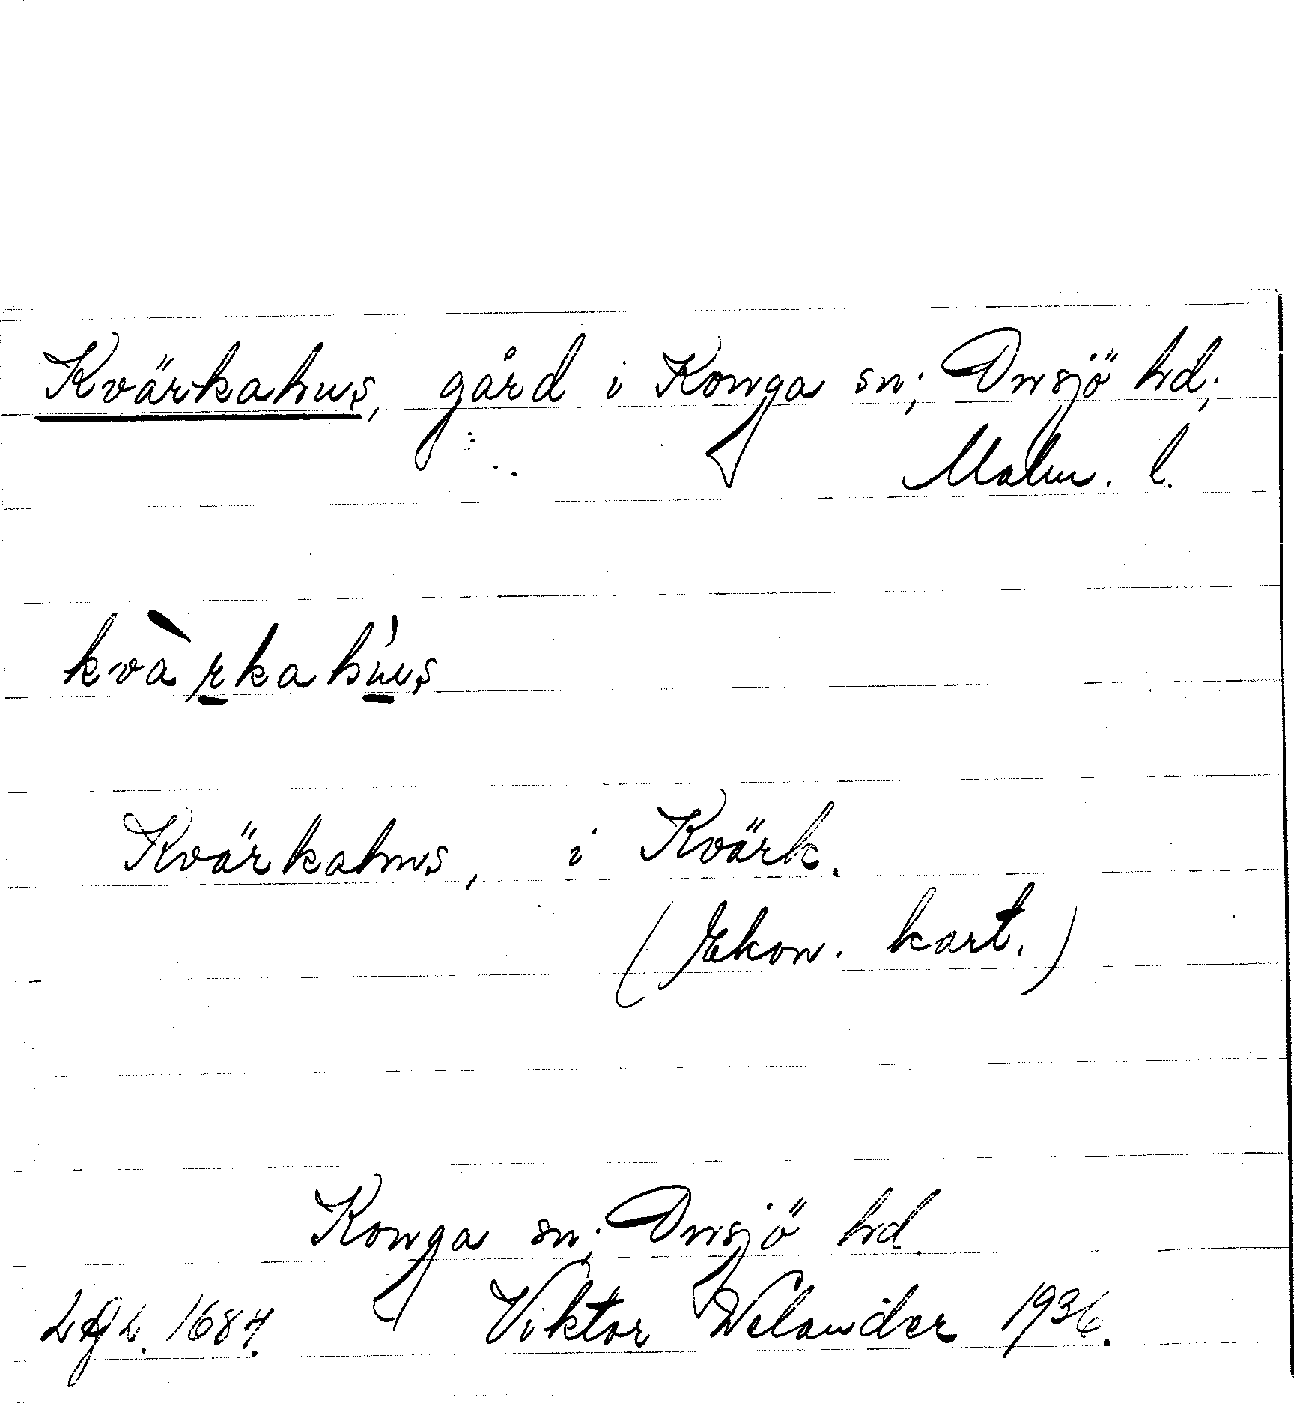 Kvärkahus, gård i Konga sn; Onsjö hd;
Malm. l.
kvàrkahús
Kvärkahus, i Kvärk.
(Ekon. kart.)
Konga sn; Onsjö hd.
1684. Viktor Welander 1936.